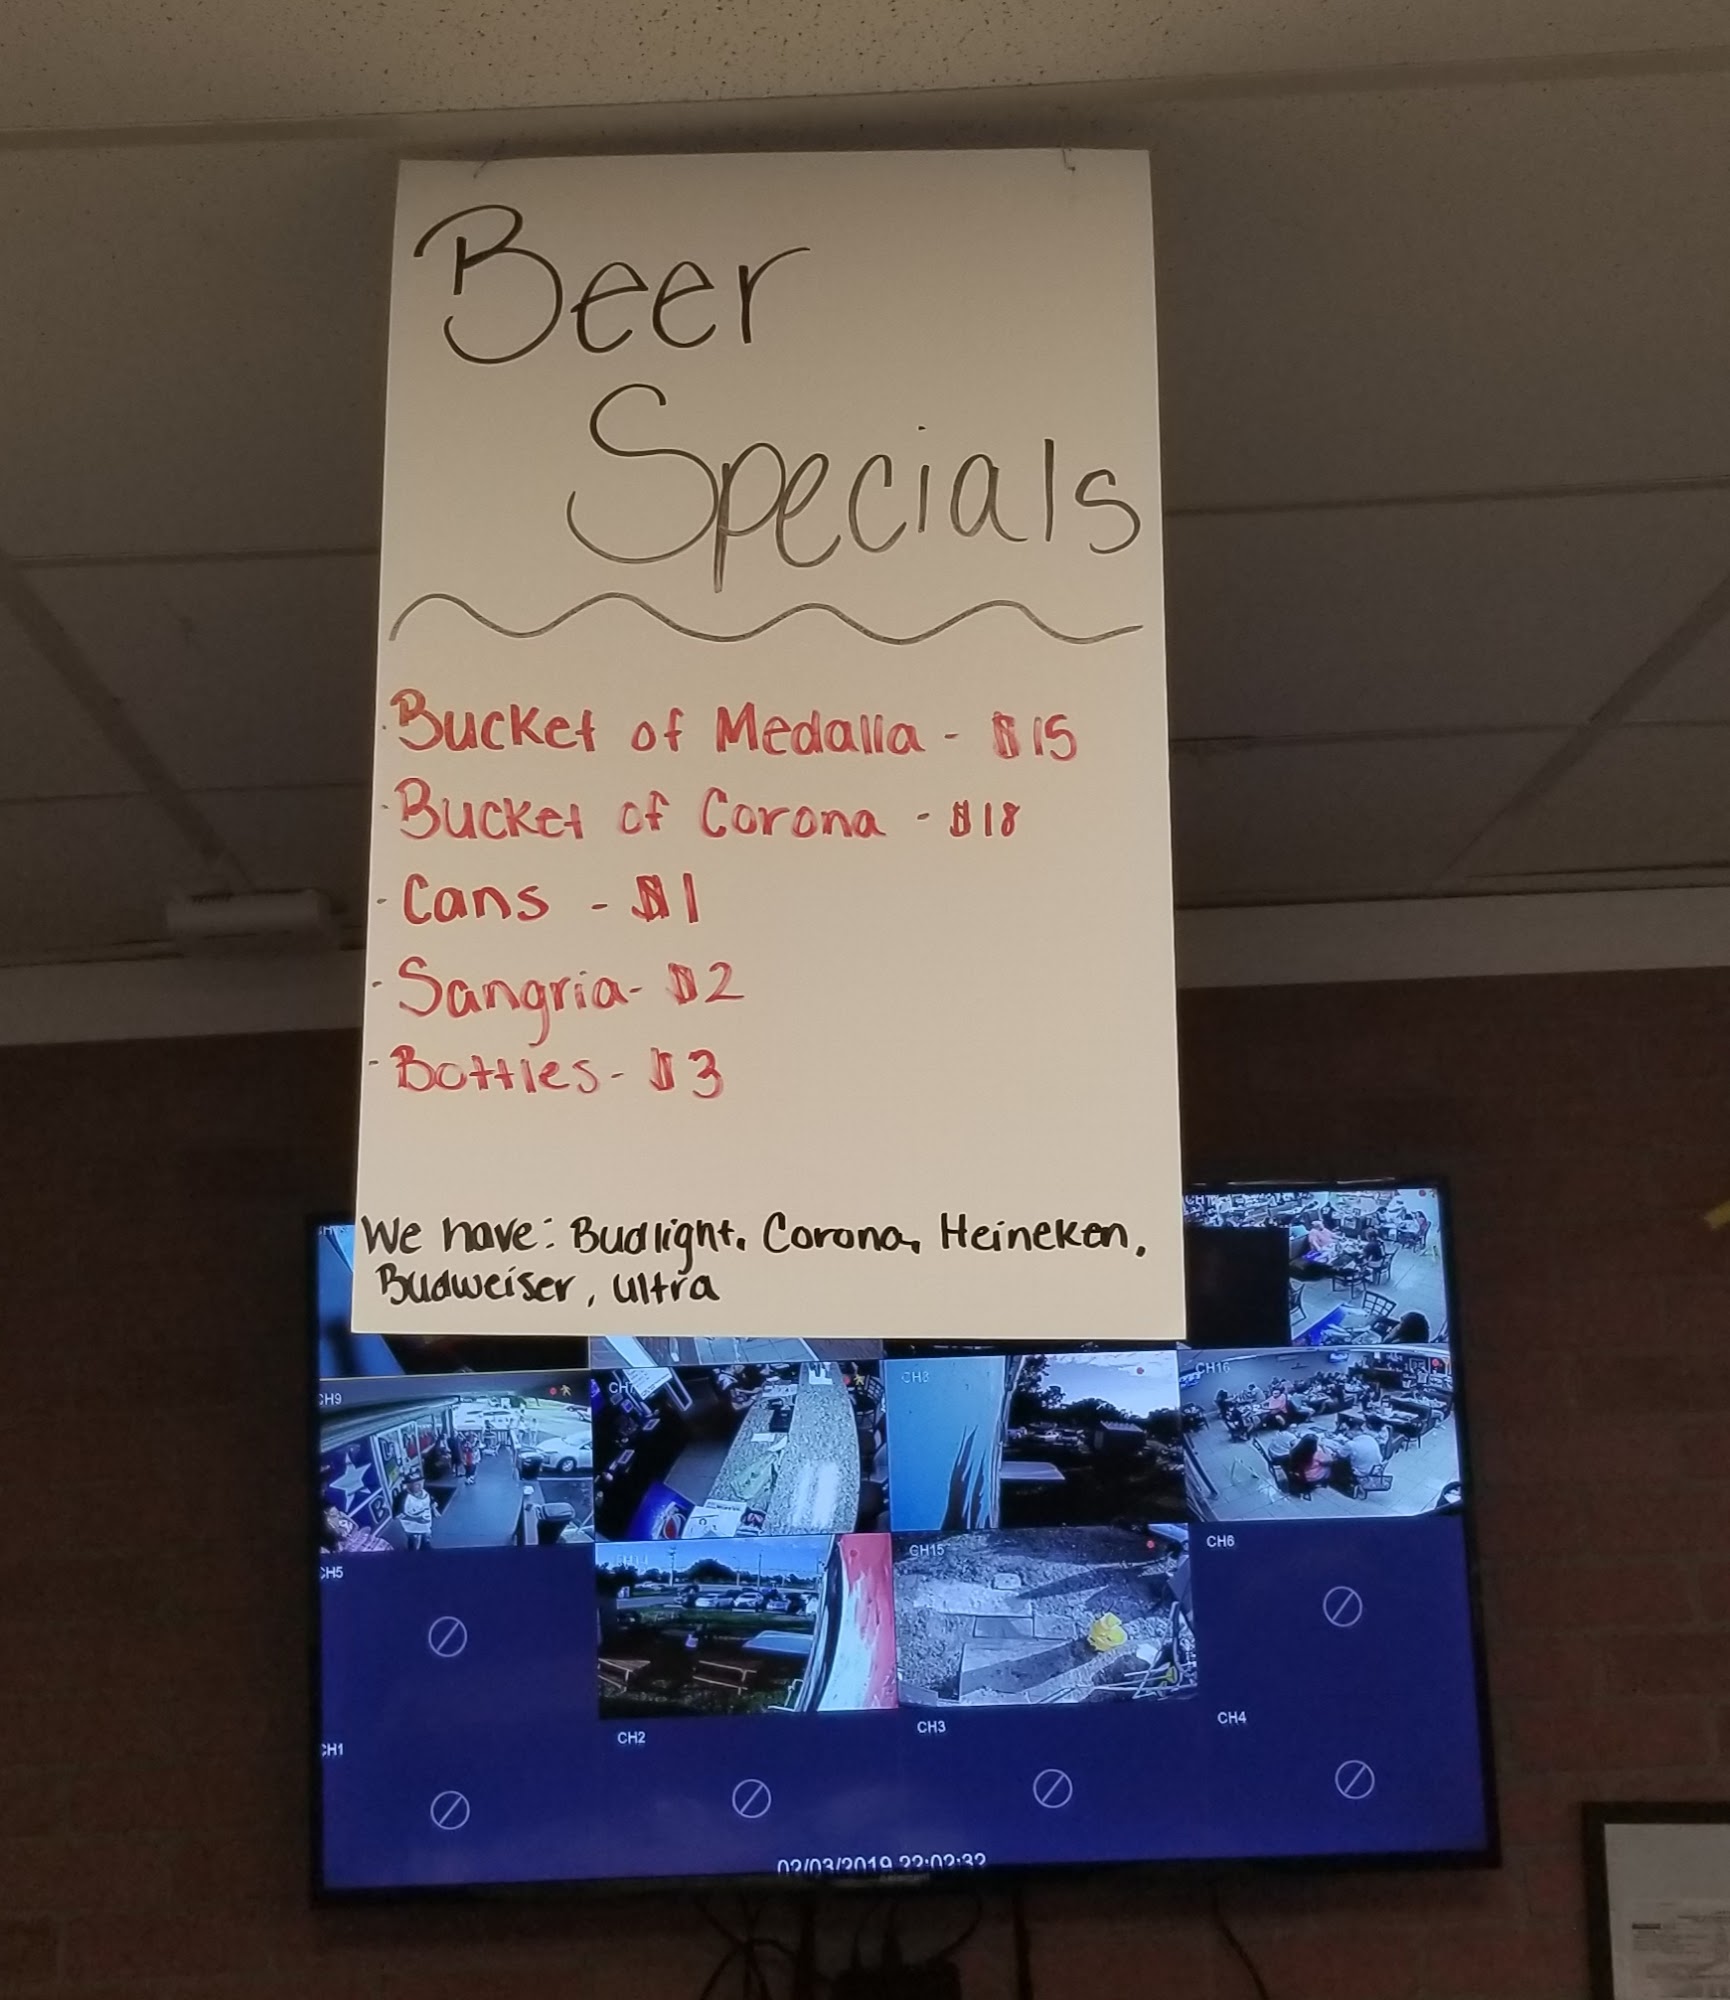 Beer
Specials
· Bucket of Medalla - $15
· Bucket of Corona - $18
- Cans - $1
- Sangria - $2
- Bottles - $3
We have: Budlight, Corona, Heineken,
Budweiser, Ultra
CH9
CH7
CH8
CH16
CH5
CH15
CH6
CH1
CH2
CH3
CH4
02/03/2019 22:02:32